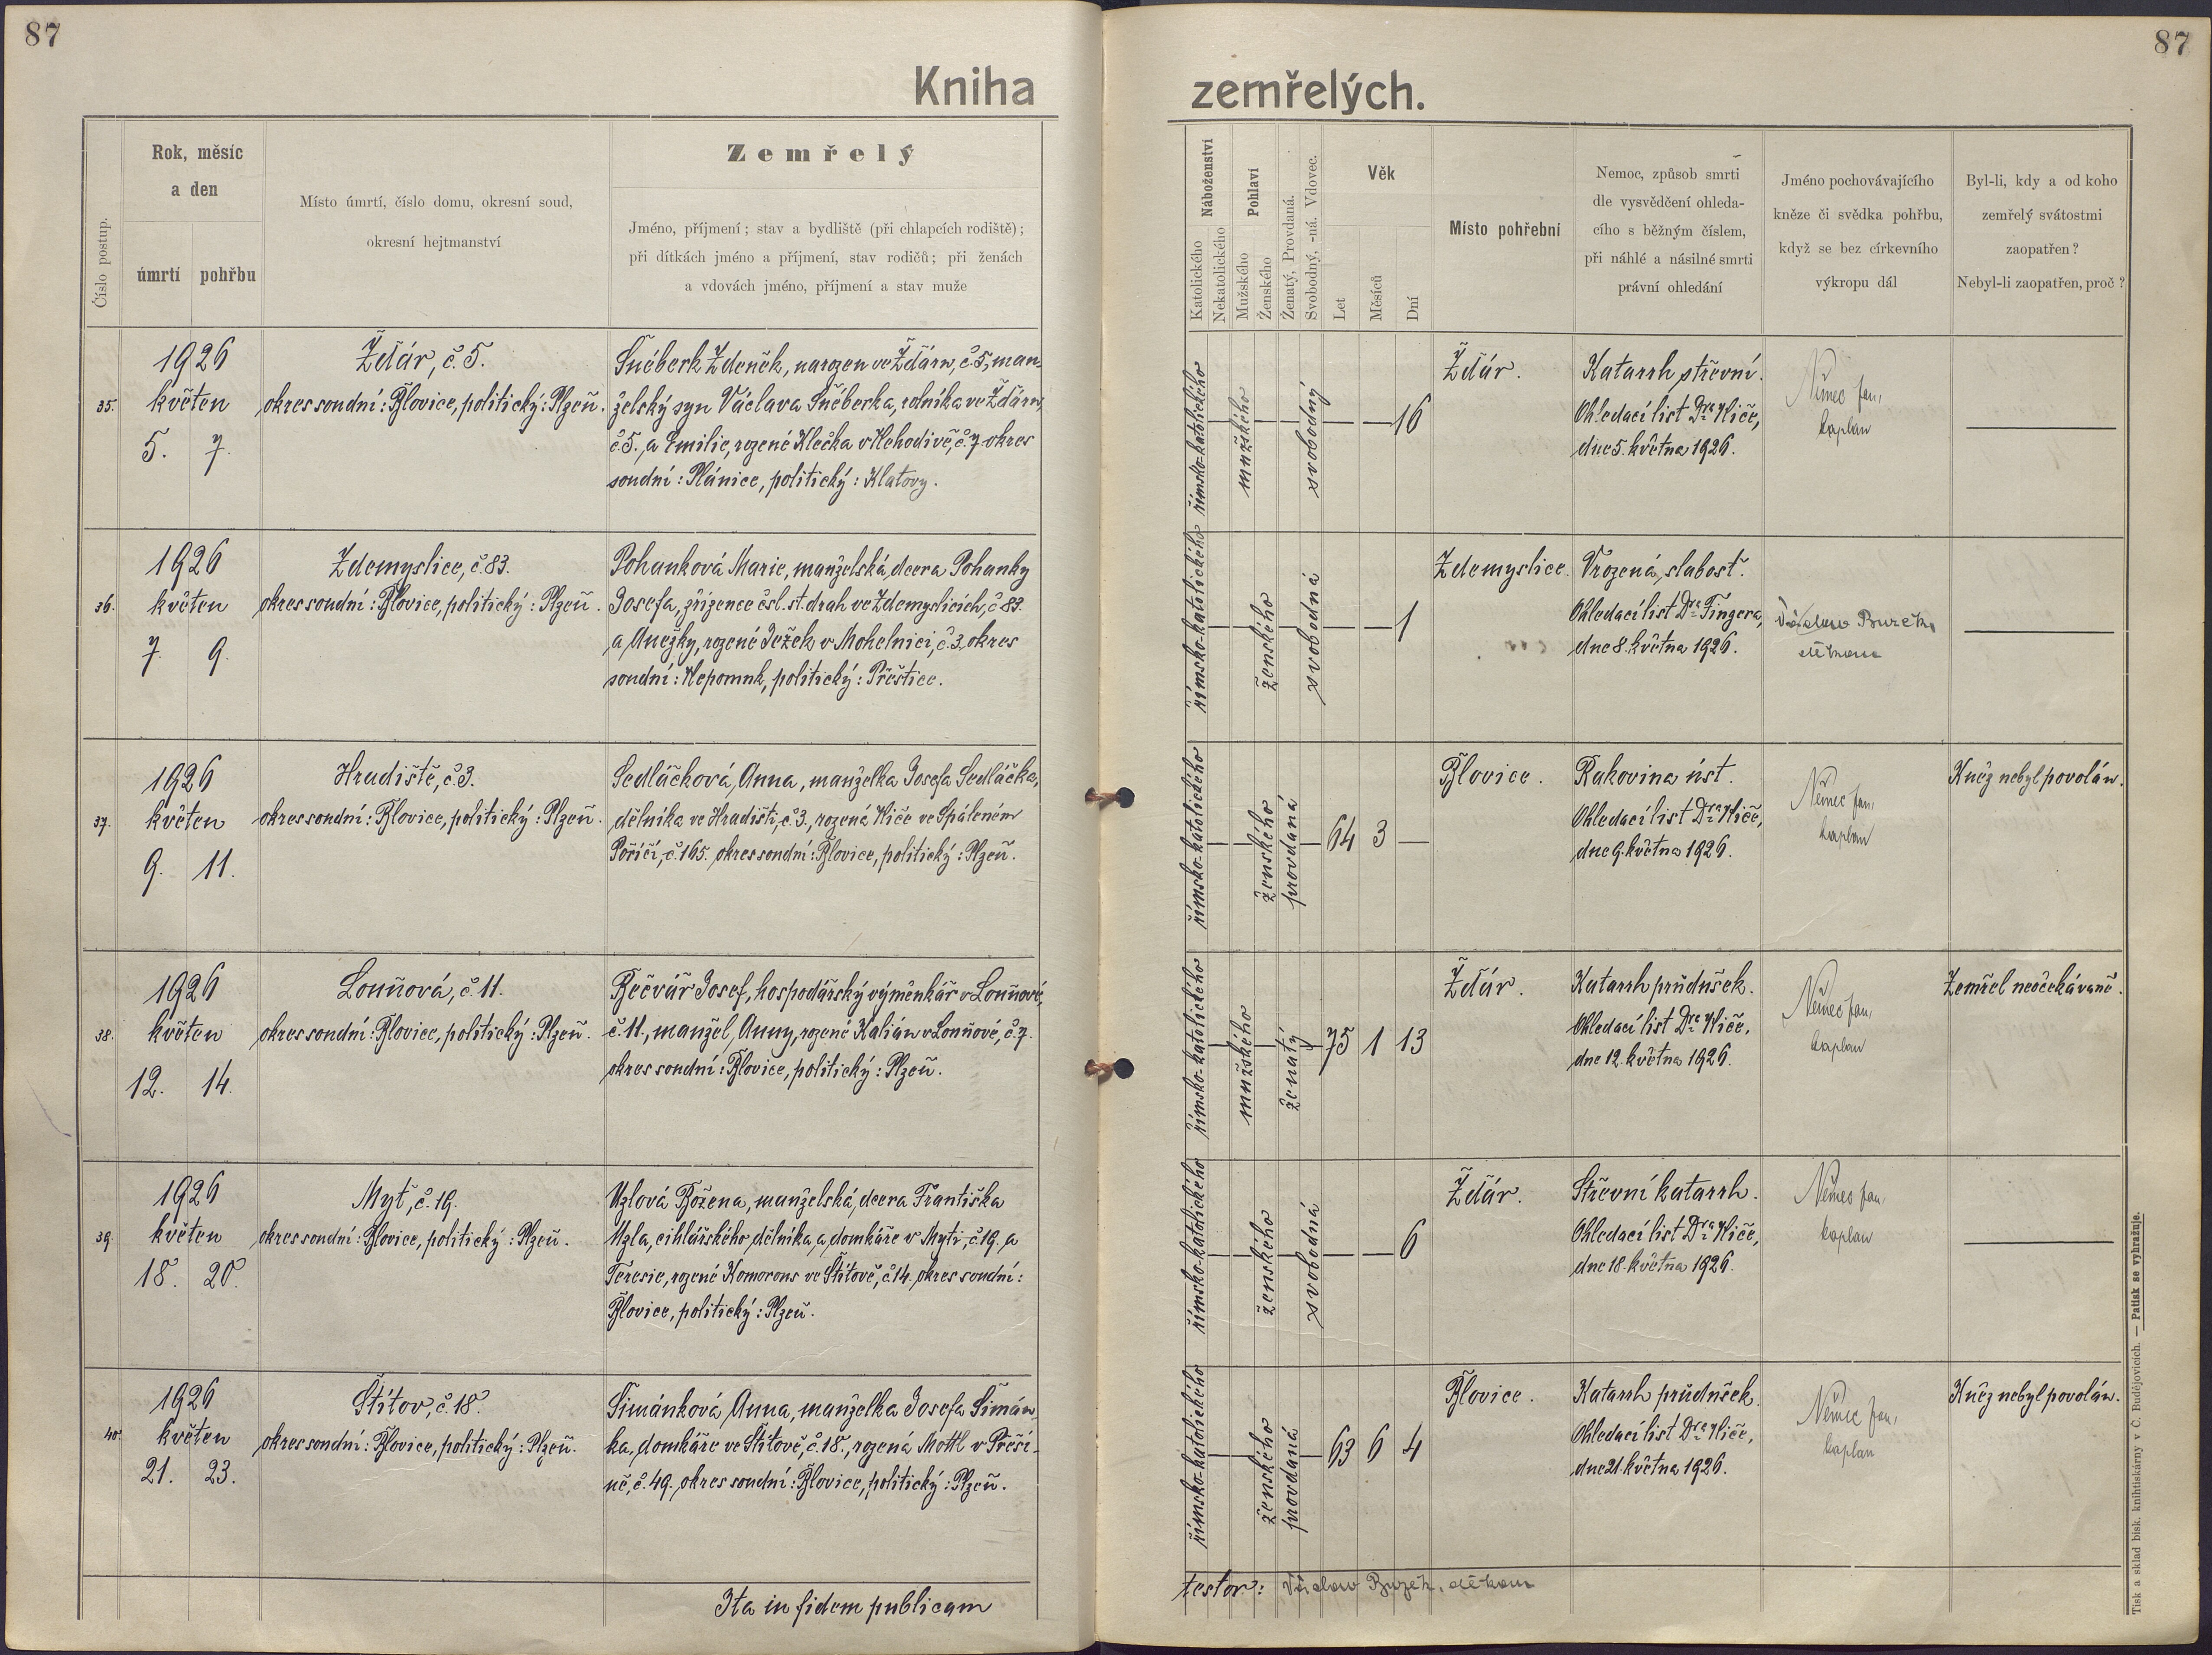 87
87
Kniha
zemřelých.
Číslo postup.
Rok, měsíc
a den
úmrtí pohřbu
Místo úmrtí, číslo domu, okresní soud,
okresní hejtmanství
Zemřelý
Jméno, příjmení; stav a bydliště (při chlapcích rodiště);
při dítkách jméno a příjmení, stav rodičů; při ženách
a vdovách jméno, příjmení a stav muže
Náboženství
Katolického
Nekatolického
Pohlaví
Mužského
Ženského
Ženatý, Provdaná.
Svobodný, -ná. Vdovec.
Věk
Let
Měsíců
Dní
Místo pohřební
Nemoc, způsob smrti
dle vysvědčení ohleda-
cího s běžným číslem,
při náhlé a násilné smrti
právní ohledání
Jméno pochovávajícího
kněze či svědka pohřbu,
když se bez církevního
výkropu dál
Byl-li, kdy a od koho
zemřelý svátostmi
zaopatřen?
Nebyl-li zaopatřen, proč?
35.
1926
květen
5. 7.
Žďár, č. 5.
okres soudní: Blovice, politický: Plzeň.
Šnéberk Zdeněk, narozen ve Žďáru, č. 5, man-
želský syn Václava Šnéberka, rolníka ve Žďáru,
č. 5. a Emilie, rozené Klečka v Nehodivě, č. 7 okres
soudní: Plánice, politický: Klatovy.
římsko-katolického
mužského
svobodný
— — 16
Žďár.
Katarrh střevní.
Ohledací list Dra Niče,
dne 5. května 1926.
Němec Jan,
kaplan
36.
1926
květen
7. 9.
Zdemyslice, č. 83.
okres soudní: Blovice, politický: Plzeň.
Pohanková Marie, manželská dcera Pohanky
Josefa, zřízence čsl. st. drah ve Zdemyslicích, č. 83.
a Anežky, rozené Ježek v Mohelnici, č. 3, okres
soudní: Nepomuk, politický: Přeštice.
římsko-katolického
ženského
svobodná
— — 1
Zdemyslice.
Vrozená slabosť.
Ohledací list Dra Fingera,
dne 8. května 1926.
Václav Buzek,
děkan
37.
1926
květen
9. 11.
Hradiště, č. 3.
okres soudní: Blovice, politický: Plzeň.
Sedláčková Anna, manželka Josefa Sedláčka,
dělníka ve Hradišti, č. 3., rozená Niče ve Spáleném
Poříčí, č. 165. okres soudní: Blovice, politický: Plzeň.
římsko-katolického
ženského
provdaná
64 3 —
Blovice.
Rakovina úst.
Ohledací list Dra Niče,
dne 9. května 1926.
Němec Jan,
kaplan
Kněz nebyl povolán.
38.
1926
květen
12. 14.
Louňová, č. 11.
okres soudní: Blovice, politický: Plzeň.
Bečvář Josef, hospodářský výměnkář v Louňové,
č. 11., manžel Anny, rozené Kalián v Louňové, č. 7.
okres soudní: Blovice, politický: Plzeň.
římsko-katolického
mužského
ženatý
75 1 13
Žďár.
Katarrh průdušek.
Ohledací list Dra Niče,
dne 12. května 1926.
Němec Jan,
kaplan
Zemřel neočekávaně.
39.
1926
květen
18. 20.
Myť, č. 19.
okres soudní: Blovice, politický: Plzeň.
Uzlová Božena, manželská dcera Františka
Uzla, cihlářského dělníka a domkáře v Myti, č. 19. a
Teresie, rozené Komorous ve Štítově, č. 14. okres soudní:
Blovice, politický: Plzeň.
římsko-katolického
ženského
svobodná
— — 6
Žďár.
Střevní katarrh.
Ohledací list Dra Niče,
dne 18. května 1926.
Němec Jan,
kaplan
40.
1926
květen
21. 23.
Štítov, č. 18.
okres soudní: Blovice, politický: Plzeň.
Šimánková Anna, manželka Josefa Šimán-
ka, domkáře ve Štítově, č. 18., rozená Mottl v Přeší-
ně, č. 49. okres soudní: Blovice, politický: Plzeň.
římsko-katolického
ženského
provdaná
63 6 4
Blovice.
Katarrh průdušek.
Ohledací list Dra Niče,
dne 21. května 1926.
Němec Jan,
kaplan
Kněz nebyl povolán.
Ita in fidem publicam
testor: Václav Buzek, děkan
Tisk a sklad bisk. knihtiskárny v Č. Budějovicích. — Patisk se vyhražuje.